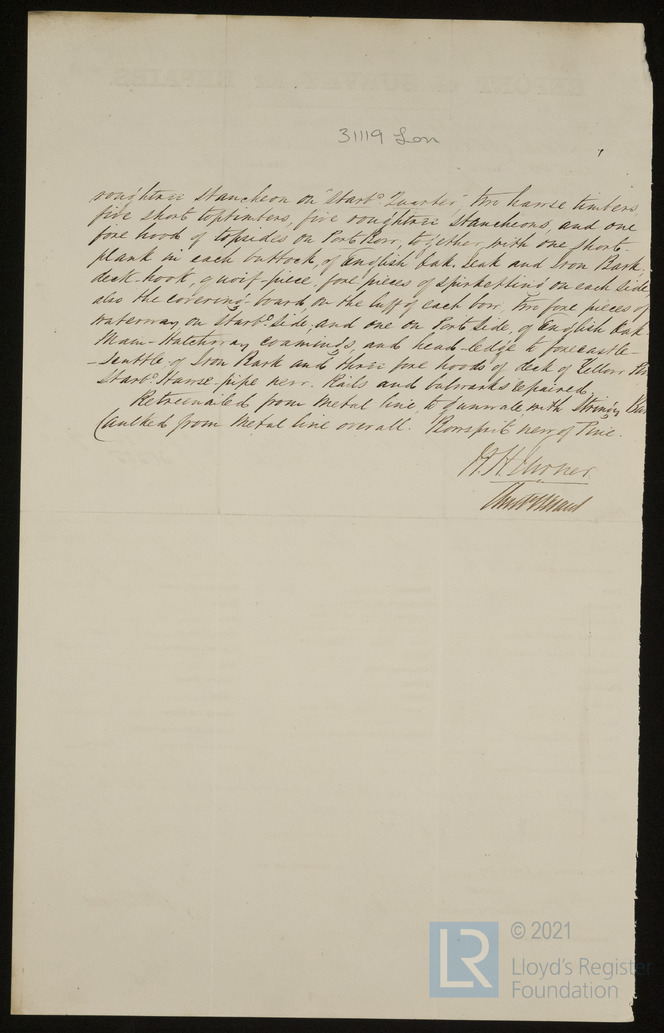 31119 Lon
roughtree stancheon on Starbd Quarter, two hawse timbers
five short toptimbers, five roughtree stancheons, and one
fore hood of topsides on Port Bow, together with one short
plank in each buttock, of English Oak, Teak and Iron Bark.
deck-hook, fore pieces of spirketting on each side,
also the covering-board, on the luff of each bow, two fore pieces of
waterway on Starbd side, and one on Port side, of English Oak
Main-Hatchway coamings and head-ledge to forecastle-
-scuttle of Iron Bark and three fore hoods of deck of Yellow
Starbd Hawse-pipe new. Rails and bulwarks repaired.
Retreenailed from metal line to gunwale with Stringy
Caulked from metal line overall. Bowsprit new of Pine.
© 2021
LR
Lloyd's Register
Foundation